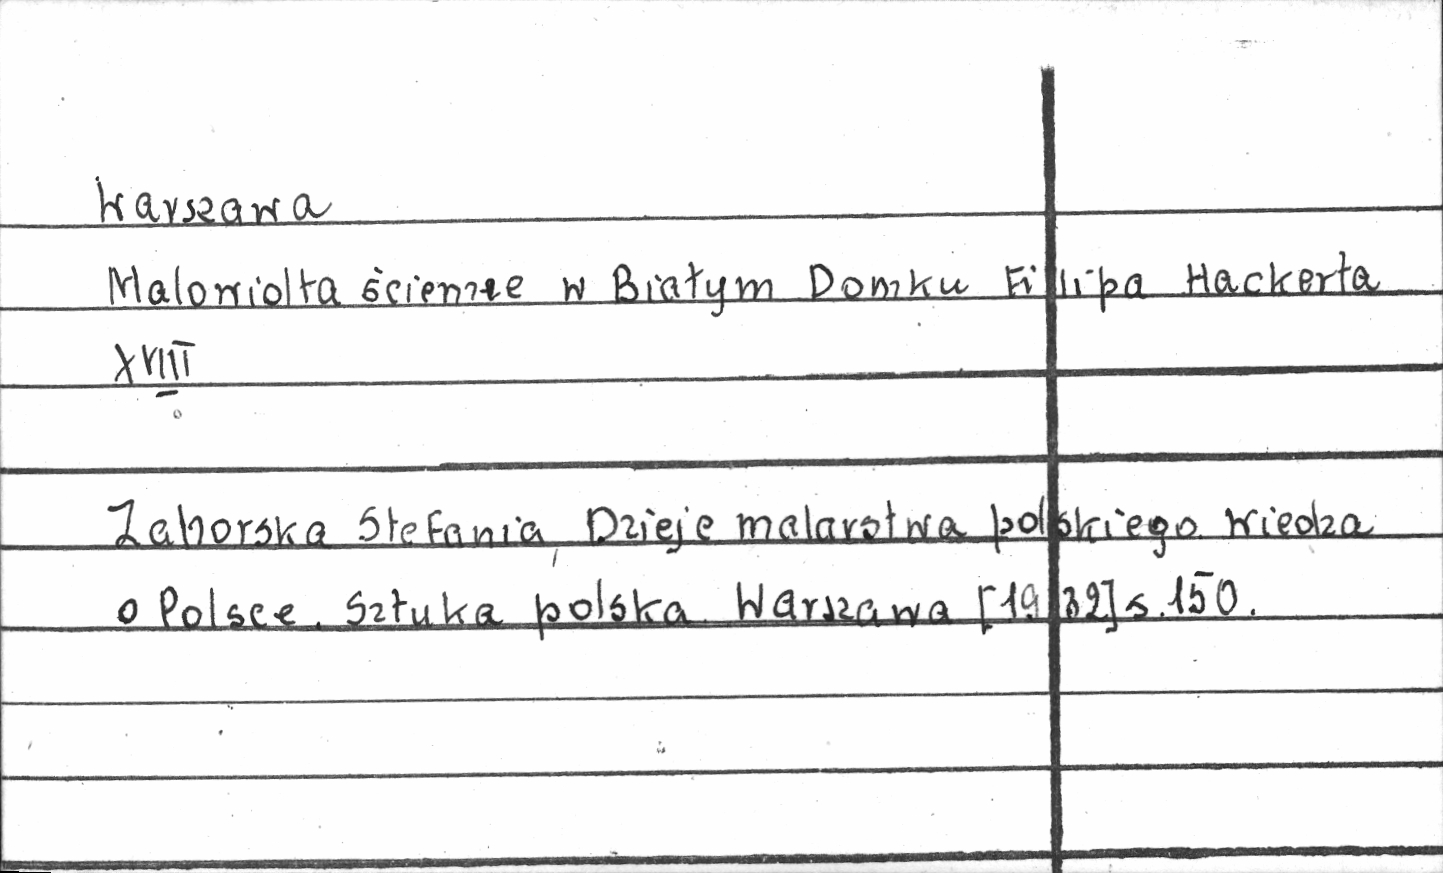 Warszawa
Malowidła ścienne w Białym Domku Filipa Hackerta
XVIII
Zahorska Stefania, Dzieje malarstwa polskiego. Wiedza
o Polsce. Sztuka polska. Warszawa [1932] s. 150.